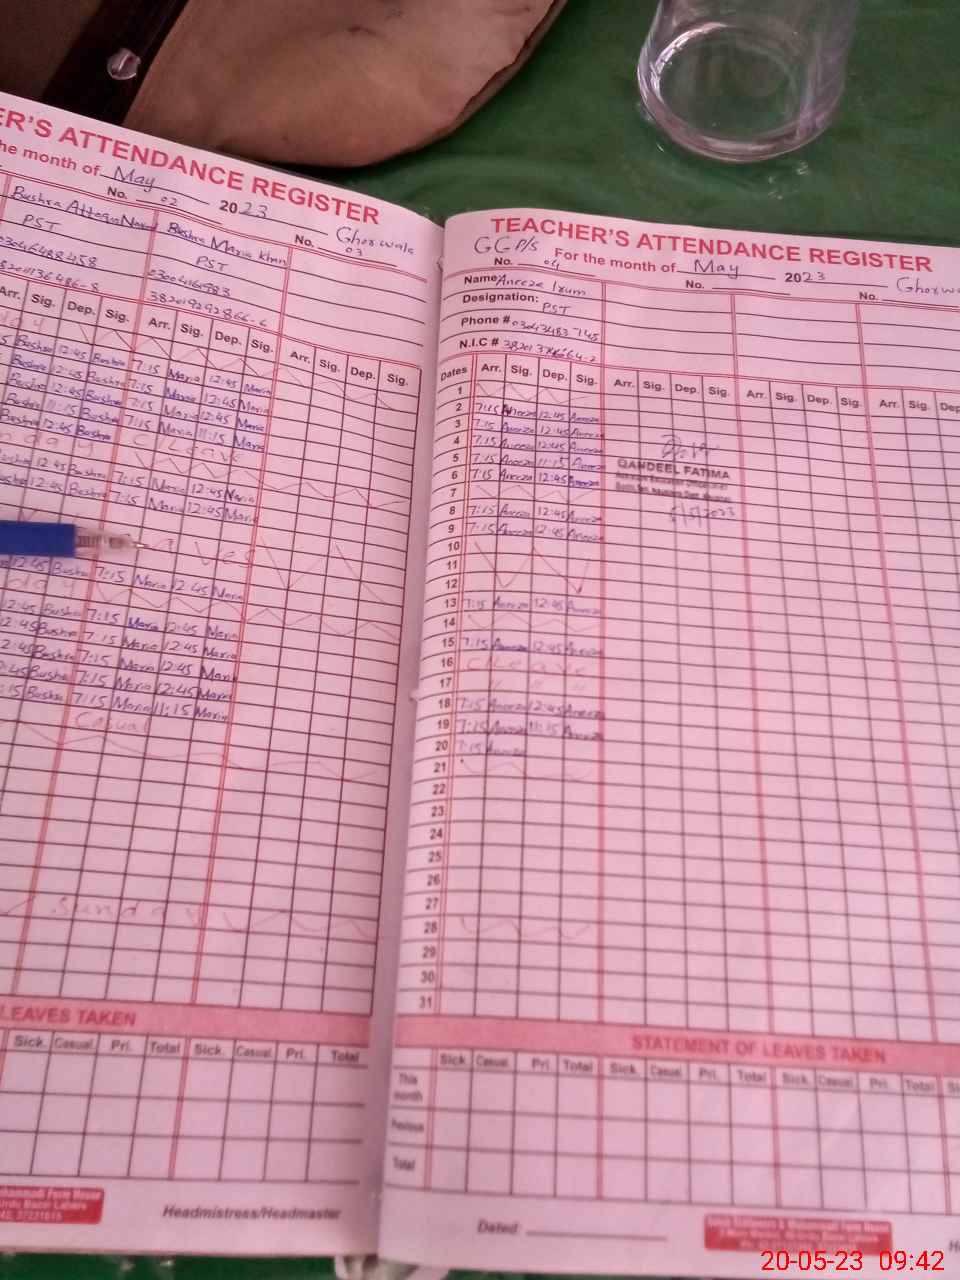 ER'S ATTENDANCE REGISTER
the month of May 2023
No. 02
No. 03
Ghorwala
Bushra
Bushra Maria Khan
PST
PST
03046488458
03004164983
382019292866-6
Arr. Sig. Dep. Sig. Arr. Sig. Dep. Sig. Arr. Sig. Dep. Sig.
day
Bushra 12:45 Bushra 7:15 Maria 12:45 Maria
Bushra 12:45 Bushra 7:15 Maria 12:45 Maria
Bushra 12:45 Bushra 7:15 Maria 12:45 Maria
Bushra 11:15 Bushra 7:15 Maria 11:15 Maria
Bushra 12:45 Bushra C Leave
nday
Bushra 12:45 Bushra 7:15 Maria 12:45 Maria
Bushra 12:45 Bushra 7:15 Maria 12:45 Maria
aves
12:45 Bushra 7:15 Maria 12:45 Maria
day
12:45 Bushra 7:15 Maria 12:45 Maria
12:45 Bushra 7:15 Maria 12:45 Maria
2:45 Bushra 7:15 Maria 12:45 Maria
:45 Bushra 7:15 Maria 12:45 Maria
:15 Bushra 7:15 Maria 11:15 Maria
Casual
Sunday
LEAVES TAKEN
Sick. Casual. Pri. Total Sick. Casual. Pri. Total
Headmistress/Headmaster
TEACHER'S ATTENDANCE REGISTER
GGP/S
For the month of May 2023
Ghorwa
No. 04
No.
No.
Name: Aneeza Irum
Designation: PST
Phone # 03043483745
N.I.C #
Dates Arr. Sig. Dep. Sig. Arr. Sig. Dep. Sig. Arr. Sig. Dep. Sig. Arr. Sig. Dep.
1
2 7:15 Aneeza 12:45 Aneeza
3 7:15 Aneeza 12:45 Aneeza
4 7:15 Aneeza 12:45 Aneeza
5 7:15 Aneeza 11:15 Aneeza
6 7:15 Aneeza 12:45 Aneeza
QANDEEL FATIMA
5/5/2023
7
8 7:15 Aneeza 12:45 Aneeza
9 7:15 Aneeza 12:45 Aneeza
10
11
12
13 7:15 Aneeza 12:45 Aneeza
14
15 7:15 Aneeza 12:45 Aneeza
16 C/Leave
17 " " "
18 7:15 Aneeza 12:45 Aneeza
19 7:15 Aneeza 11:15 Aneeza
20 7:15 Aneeza
21
22
23
24
25
26
27
28
29
30
31
STATEMENT OF LEAVES TAKEN
Sick. Casual. Pri. Total Sick. Casual. Pri. Total Sick. Casual. Pri. Total
This month
Previous
Total
Dated:
20-05-23 09:42